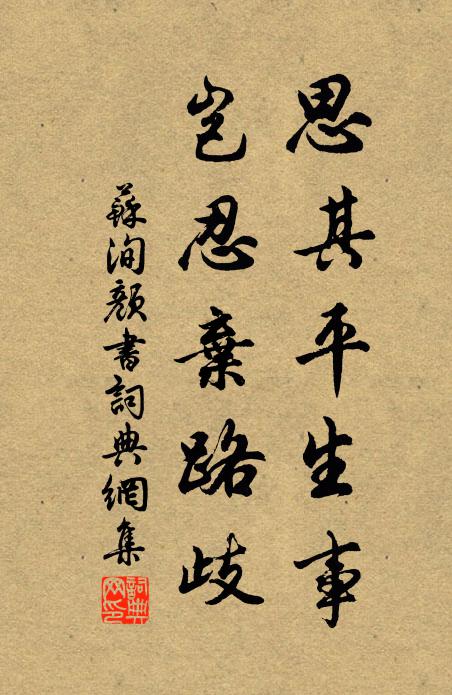 思其平生事
豈忍棄路歧
蘇洵顏書詞典網集
詞典网印